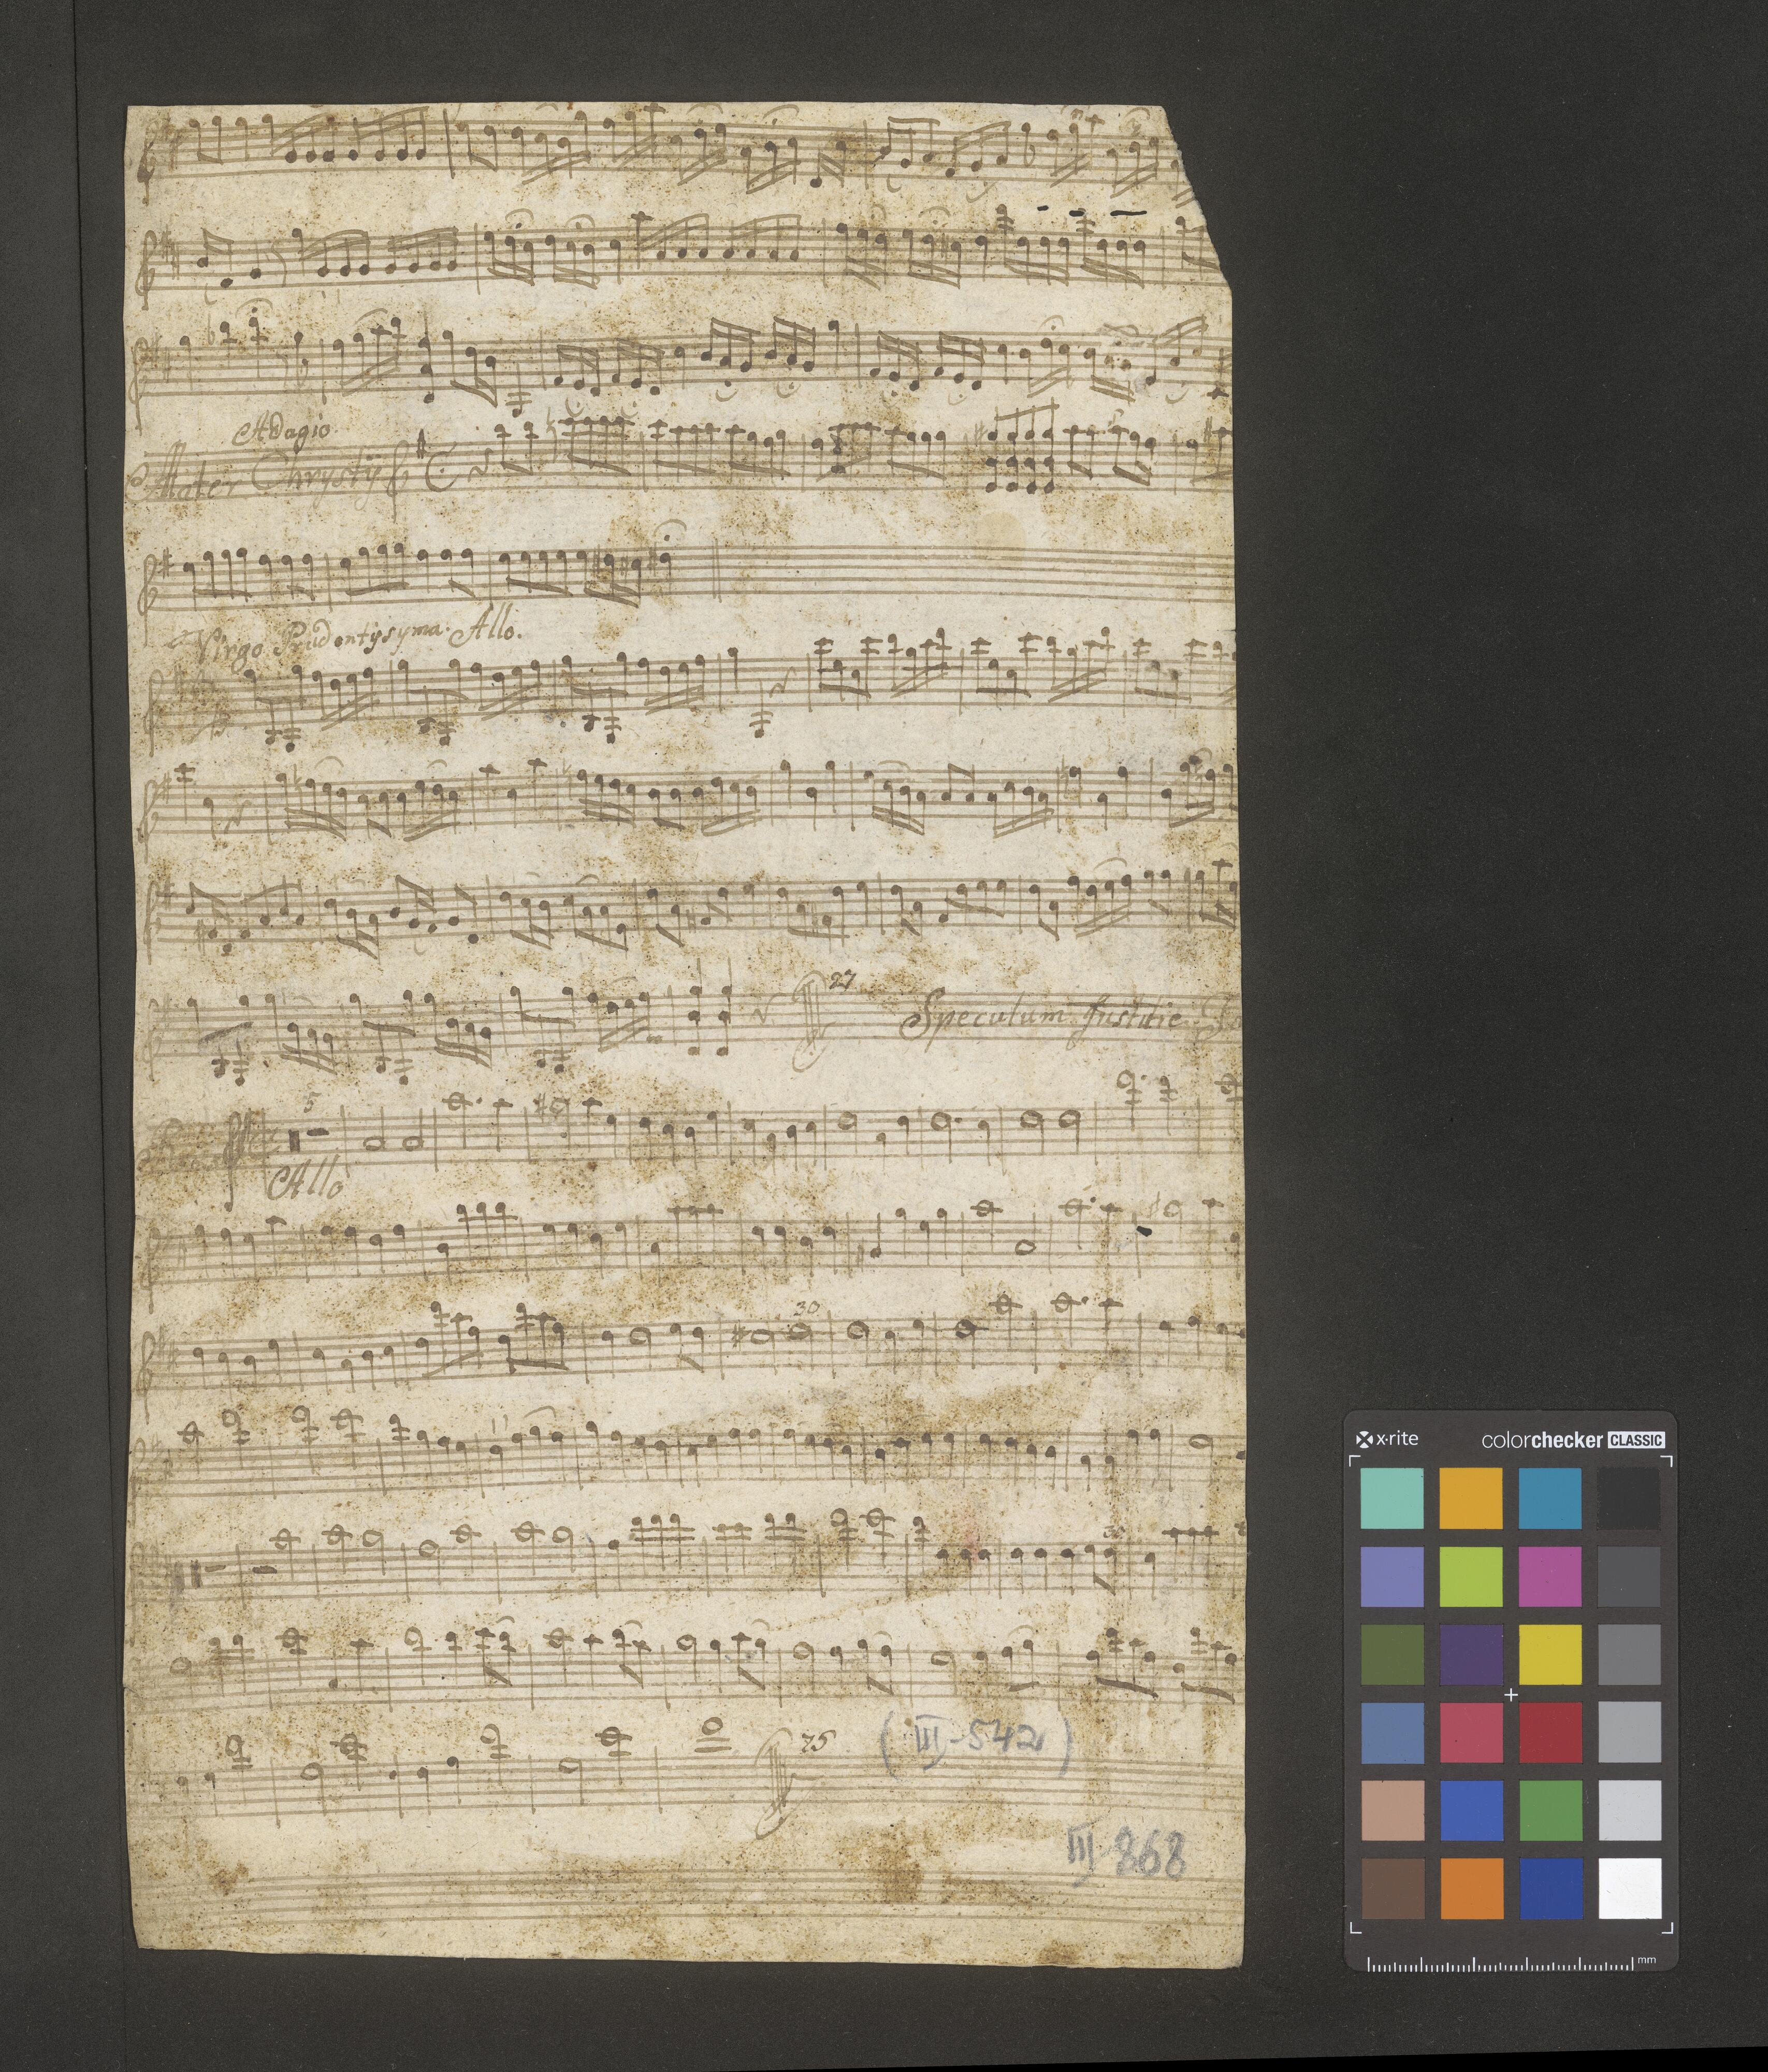 Adagio.
Mater Chrystÿ
Virgo Prudentÿsyma. Allo.
27
Speculum Justitie
5
Allo
30
75
(III-542)
III-868
x·rite colorchecker CLASSIC
mm